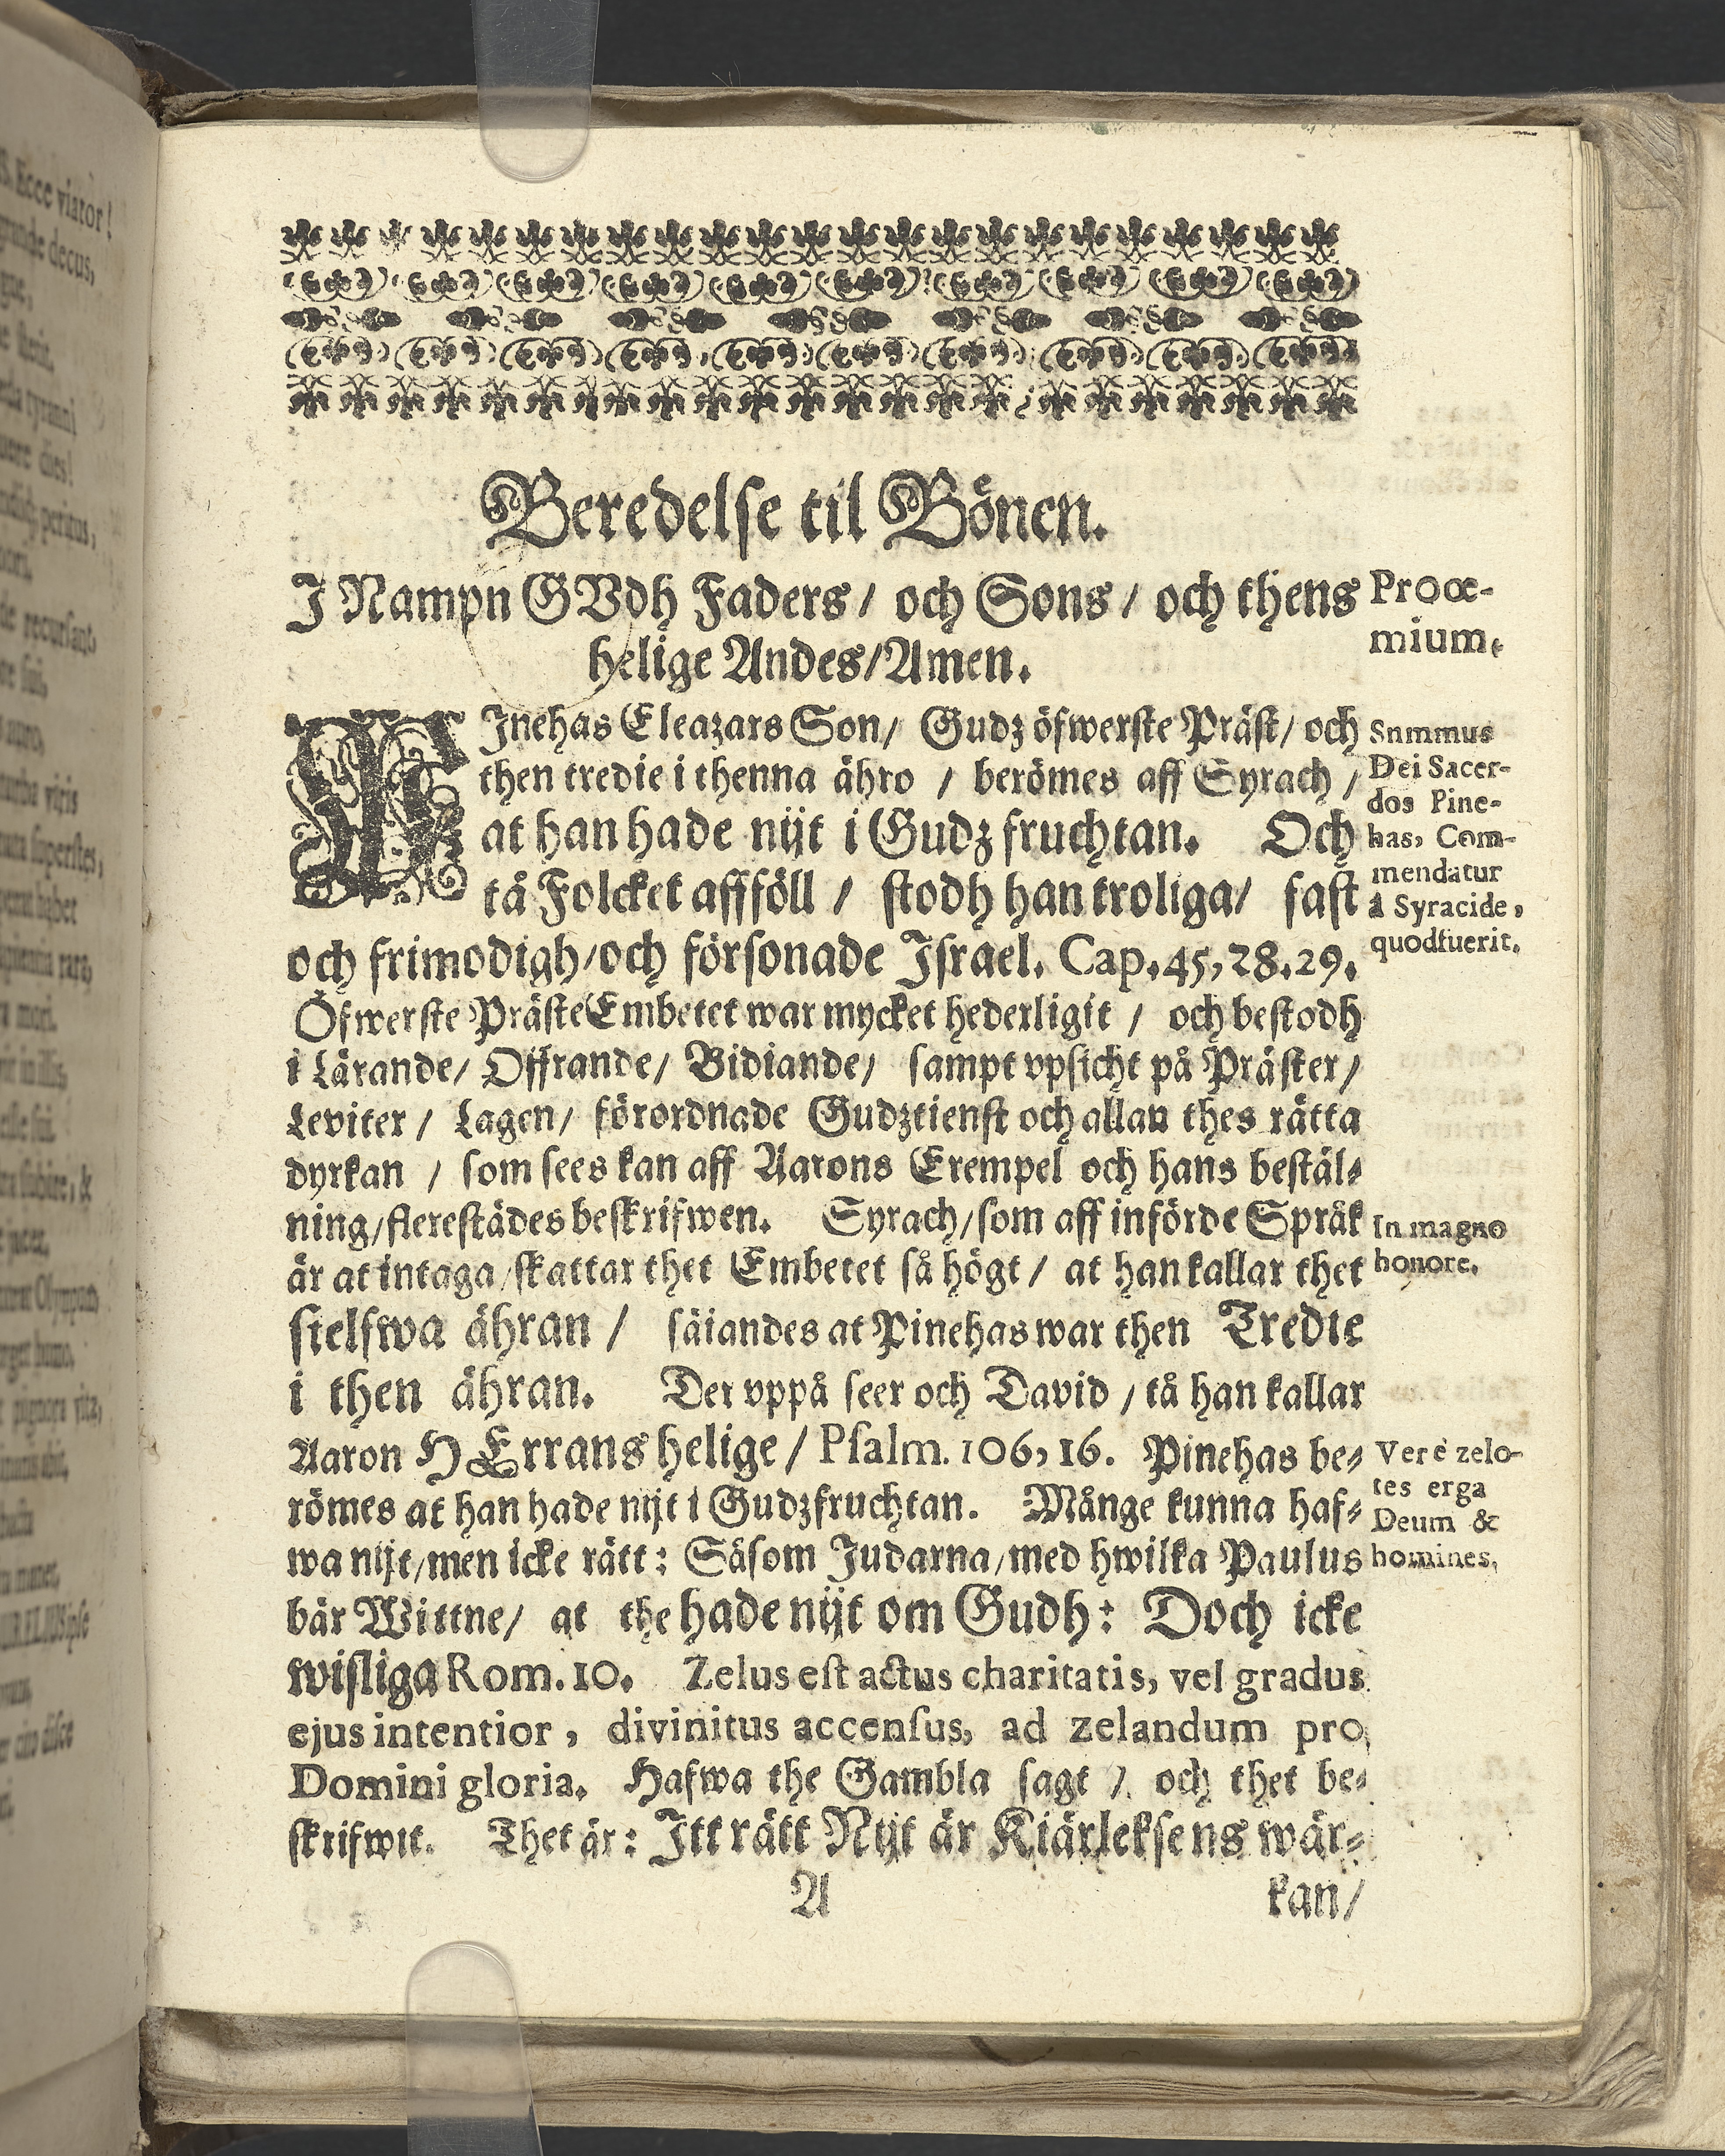 Beredelse til Bönen.
J Nampn GVdh Faders / och Sons / och thens
helige Andes/Amen.
Proœ-
mium.
PJnehas Eleazars Son/ Gudz öfwerste Präst/ och
then tredie i thenna ähro / berömes aff Syrach /
at han hade nijt i Gudz fruchtan. Och
tå Folcket affföll / stodh han troliga/ fast
och frimodigh/och försonade Jsrael. Cap.45,28.29.
Snmmus
Dei Sacer-
dos Pine-
has, Com-
mendatur
â Syracide,
quod fuerit.
Öfwerste Präste Embetet war mycket hederligit / och bestodh
i Lärande/ Offrande/ Bidiande/ sampt vpsicht på Präster/
Leviter / Lagen/ förordnade Gudztienst och allan thes rätta
dyrkan / som sees kan aff Aarons Exempel och hans bestäl-
ning/flerestädes beskrifwen. Syrach/som aff införde Språk
är at intaga/skattar thet Embetet så högt / at han kallar thet
sielfwa ähran / säiandes at Pinehas war then Tredie
i then ähran. Der vppå seer och David / tå han kallar
Aaron HErrans helige / Psalm. 106, 16. Pinehas be-
römes at han hade nijt i Gudzfruchtan. Månge kunna haf-
wa nijt/men icke rätt: Såsom Judarna/med hwilka Paulus
bär Wittne/ at the hade nijt om Gudh: Doch icke
wisliga Rom. 10. Zelus est actus charitatis, vel gradus
ejus intentior, divinitus accensus, ad zelandum pro
Domini gloria. Hafwa the Gambla sagt / och thet be-
skrifwit. Thet är: Jtt rätt Nijt är Kiärleksens wär-
In magno
honore.
Verè zelo-
tes erga
Deum &
homines,
A
kan/